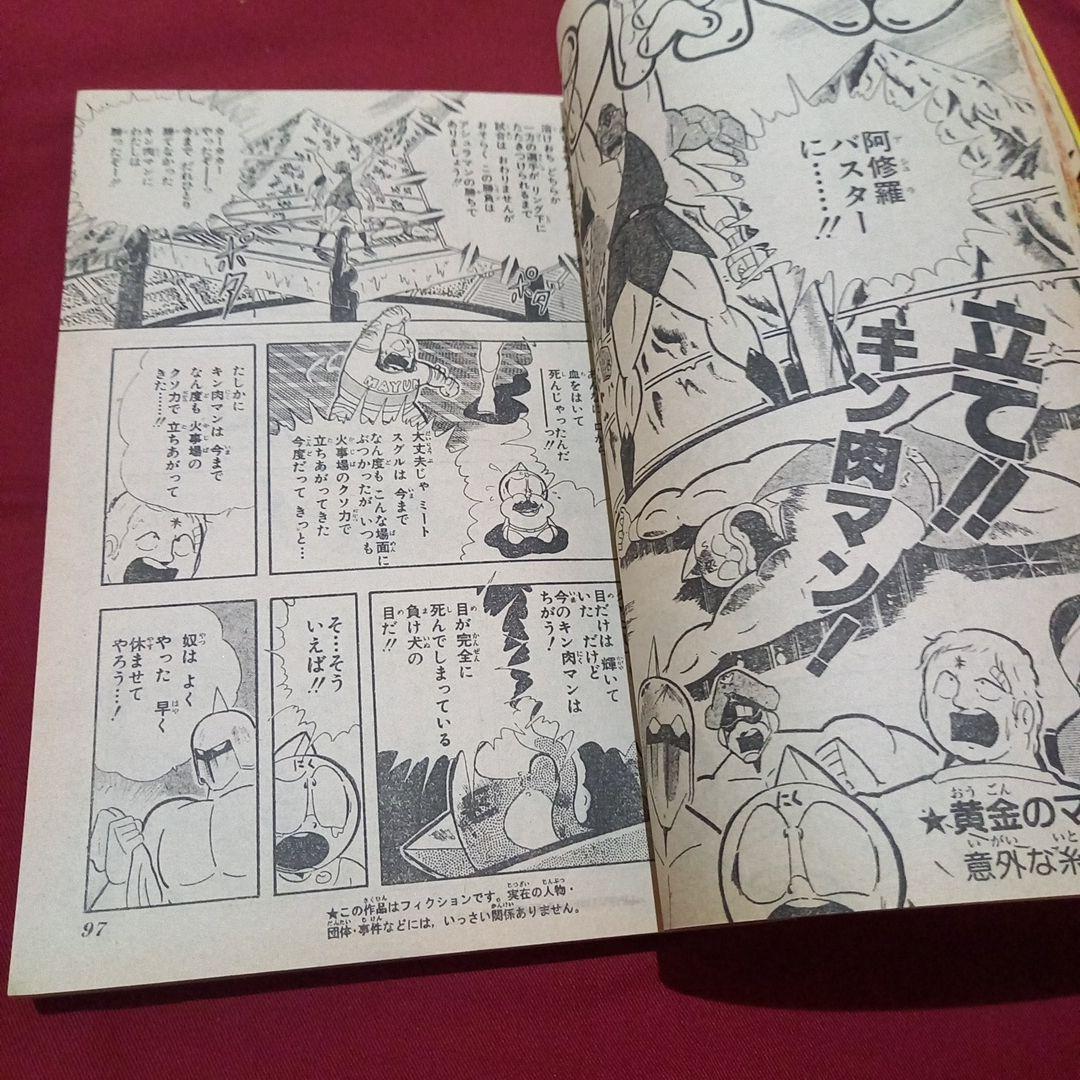 阿修羅
バスター
に……!!
立て!!
キン肉マン!
にく
★黄金のマ
意外な糸
一方の選手が リング下に
たたきつけられるまで
試合は おわりませんが
おそらく この勝負は
アシュラマンの勝ちで
ありましょう!!
カーカカカー
やったぞーっ
今まで だれひとり
勝てなかった
キン肉マンに
わたしは
勝ったぞーっ!!
ポタ
ポタ
血をはいて
死んじゃったんだ
ーーっ!!
MAYUMI
大丈夫じゃ ミート
スグルは 今まで
なん度も こんな場面に
ぶつかったが いつも
火事場のクソ力で
立ちあがってきた
今度だって きっと…
たしかに
キン肉マンは 今まで
なん度も 火事場の
クソ力で 立ちあがって
きた……!!
目だけは 輝いて
いた だけど
今のキン肉マンは
ちがう!
目が完全に
死んでしまっている
負け犬の
目だ!!
そ…そう
いえば!!
にく
奴は よく
やった 早く
休ませて
やろう…!
★この作品はフィクションです。実在の人物・
団体・事件などには、いっさい関係ありません。
97